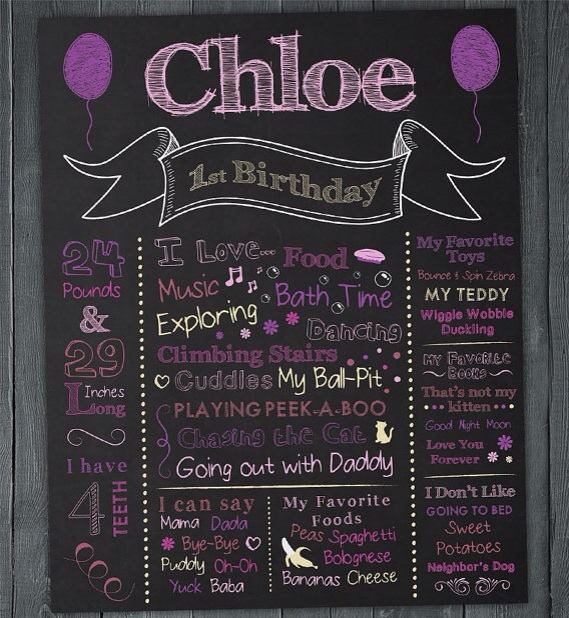 Chloe
1st Birthday
24
Pounds
&
29
Inches
Long
I have
4
TEETH
I Love... Food
Music
Bath Time
Exploring
Dancing
Climbing Stairs
Cuddles My Ball-Pit
PLAYING PEEK-A-BOO
Chasing the Cat
Going out with Daddy
I can say
Mama Dada
Bye-Bye
Puddy Oh-Oh
Yuck Baba
My Favorite
Foods
Peas Spaghetti
Bolognese
Bananas Cheese
My Favorite
Toys
Bounce & Spin Zebra
MY TEDDY
Wiggle Wobble
Duckling
My Favorite
Books
That's not my
kitten
Good Night Moon
Love You
Forever
I Don't Like
GOING TO BED
Sweet
Potatoes
Neighbor's Dog